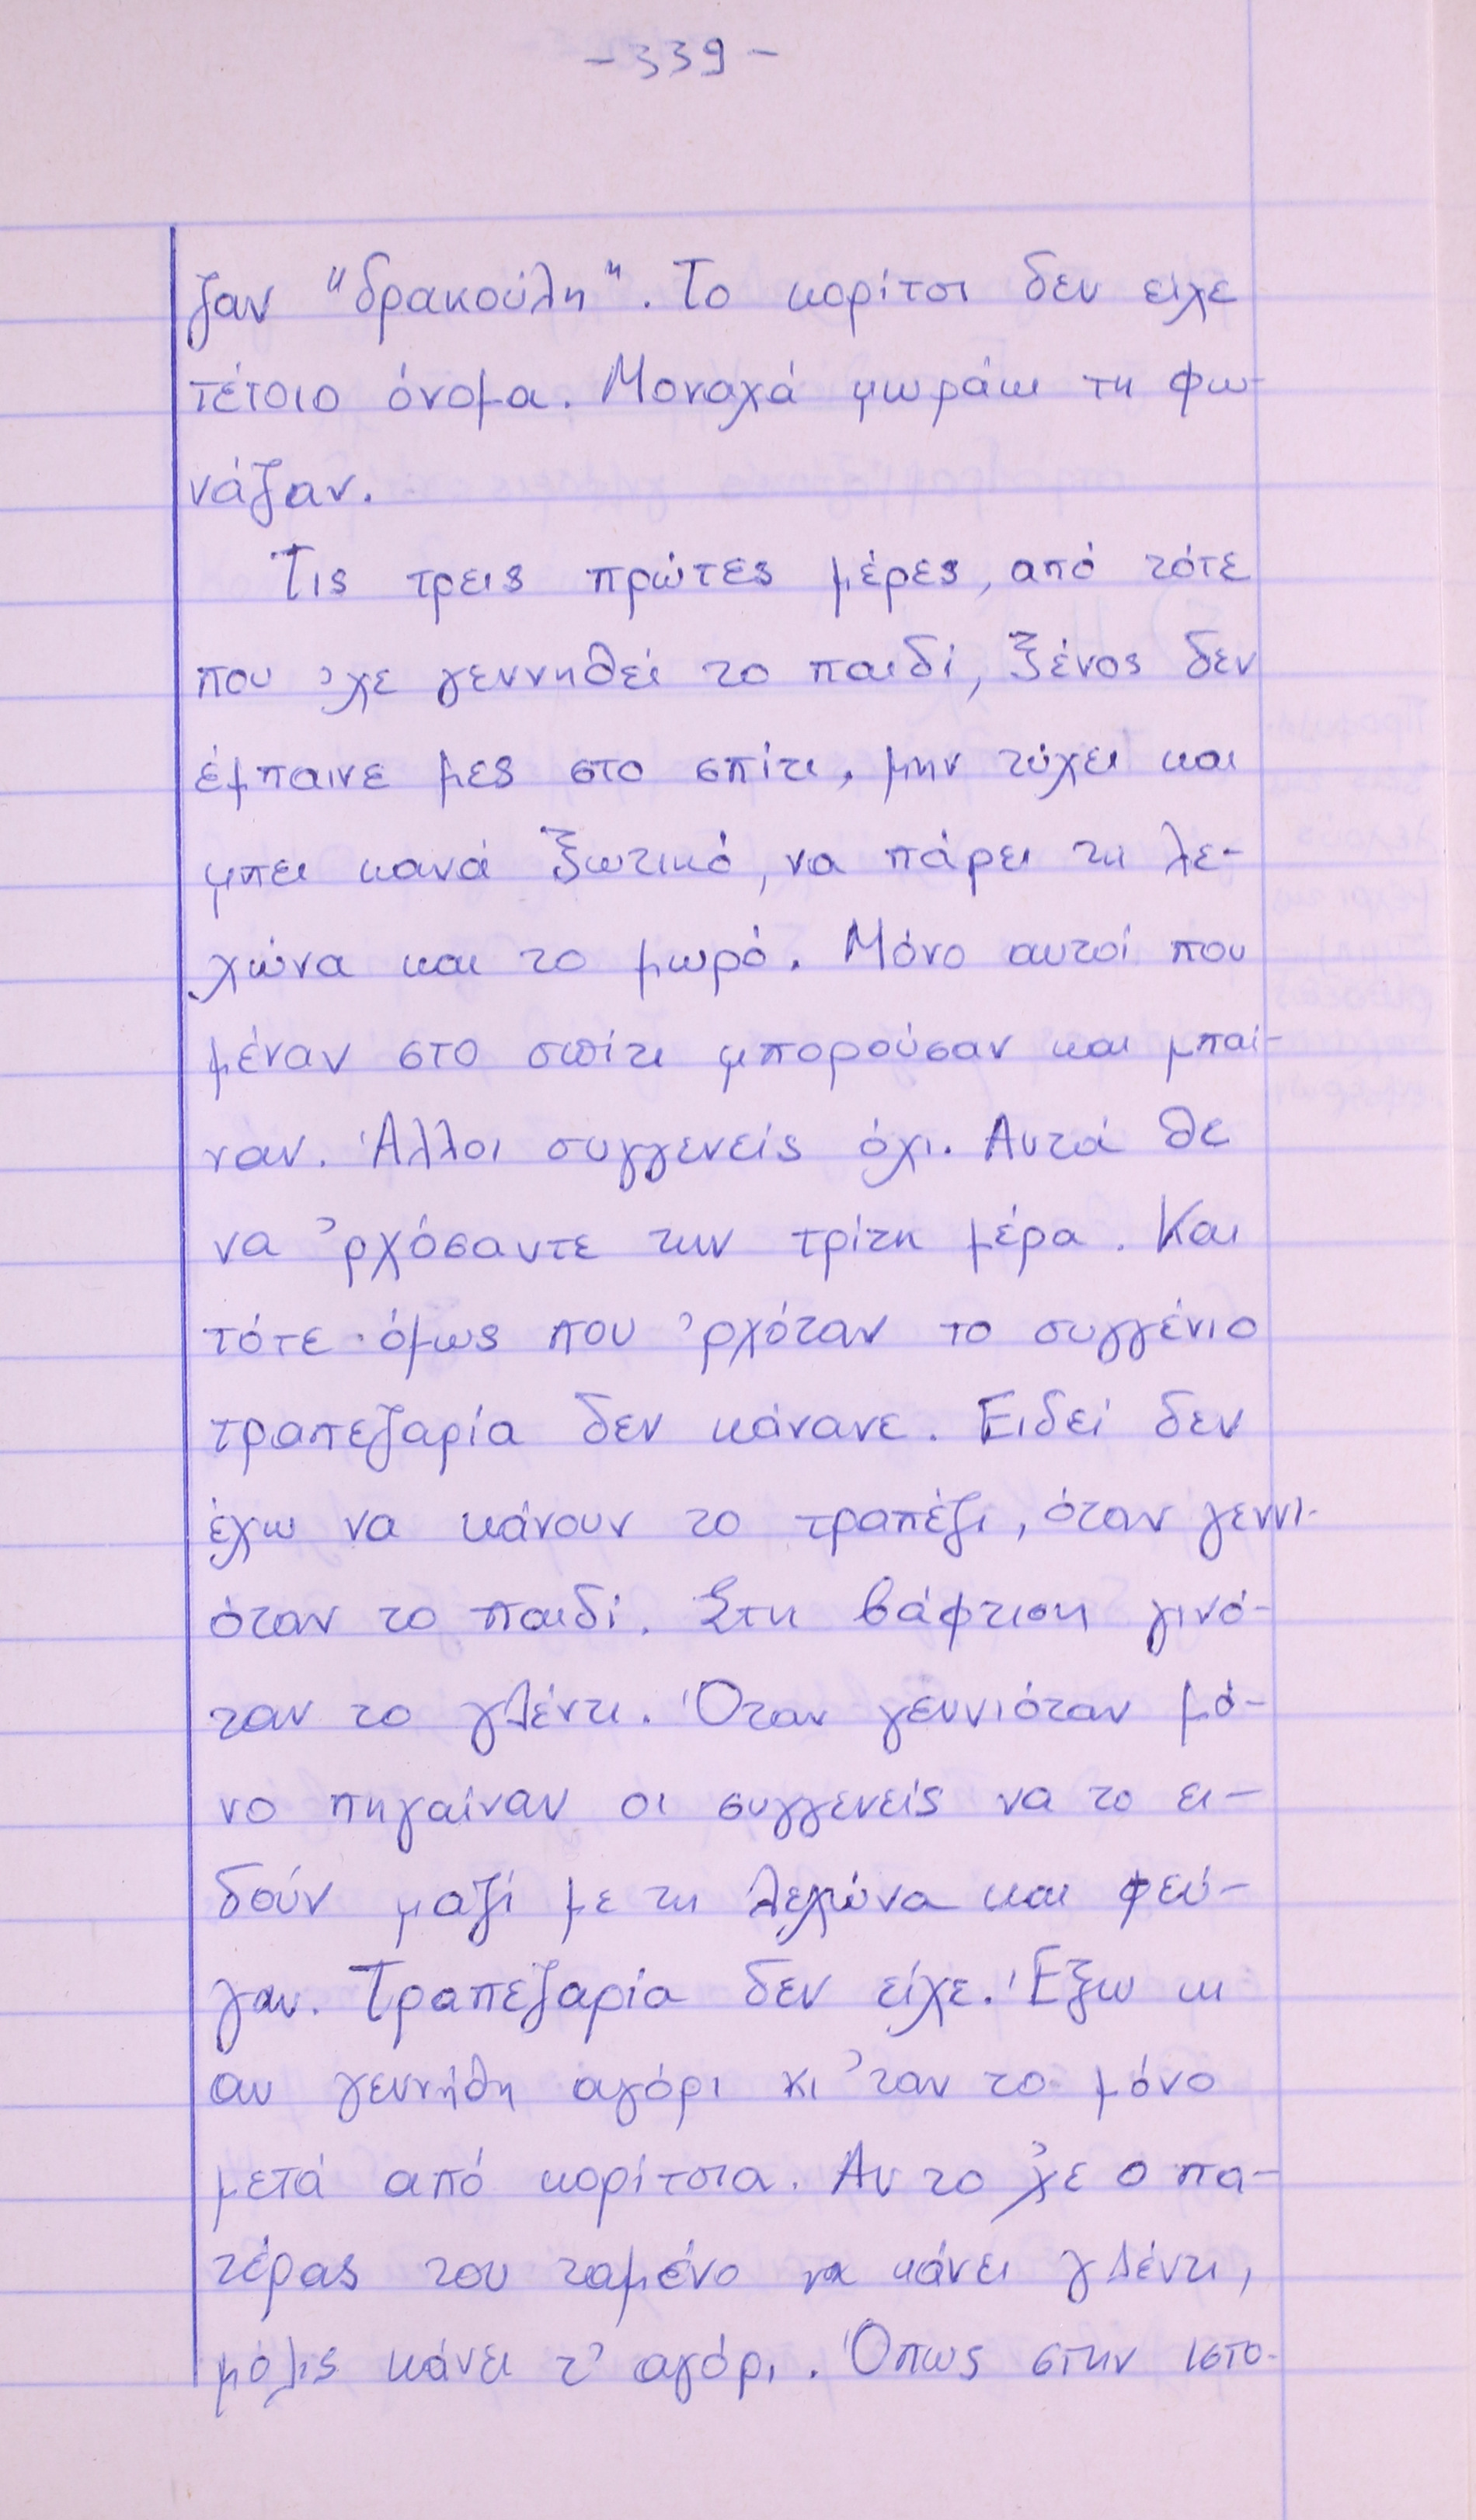 -339-
ζαν "δρακούλη". Το κορίτσι δεν είχε
τέτοιο όνομα. Μοναχά μωράϊ τη φω-
νάζαν.
Τις τρεις πρώτες μέρες, από τότε
που 'χε γεννηθεί το παιδί, ξένος δεν
έμπαινε μες στο σπίτι, μην τύχει και
μπει κανά ξωτικό, να πάρει τη λε-
χώνα και το μωρό. Μόνο αυτοί που
μέναν στο σπίτι μπορούσαν και μπαί-
ναν. Άλλοι συγγενείς όχι. Αυτά θε
να 'ρχόσαντε την τρίτη μέρα. Και
τότε όμως που 'ρχόταν το συγγένιο
τραπεζαρία δεν κάνανε. Ειδεί δεν
έχω να κάνουν το τραπέζι, όταν γεννι-
όταν το παιδί. Στη βάφτιση γινό-
ταν το γλέντι. Όταν γεννιόταν μό-
νο πηγαίναν οι συγγενείς να το ει-
δούν μαζί με τη λεχώνα και φεύ-
γαν. Τραπεζαρία δεν είχε. Έξω κι
αν γεννήθη αγόρι κι 'ταν το μόνο
μετά από κορίτσια. Αν το 'χε ο πα-
τέρας του ταμένο να κάνει γλέντι,
μόλις κάνει τ' αγόρι. Όπως στην ιστο-